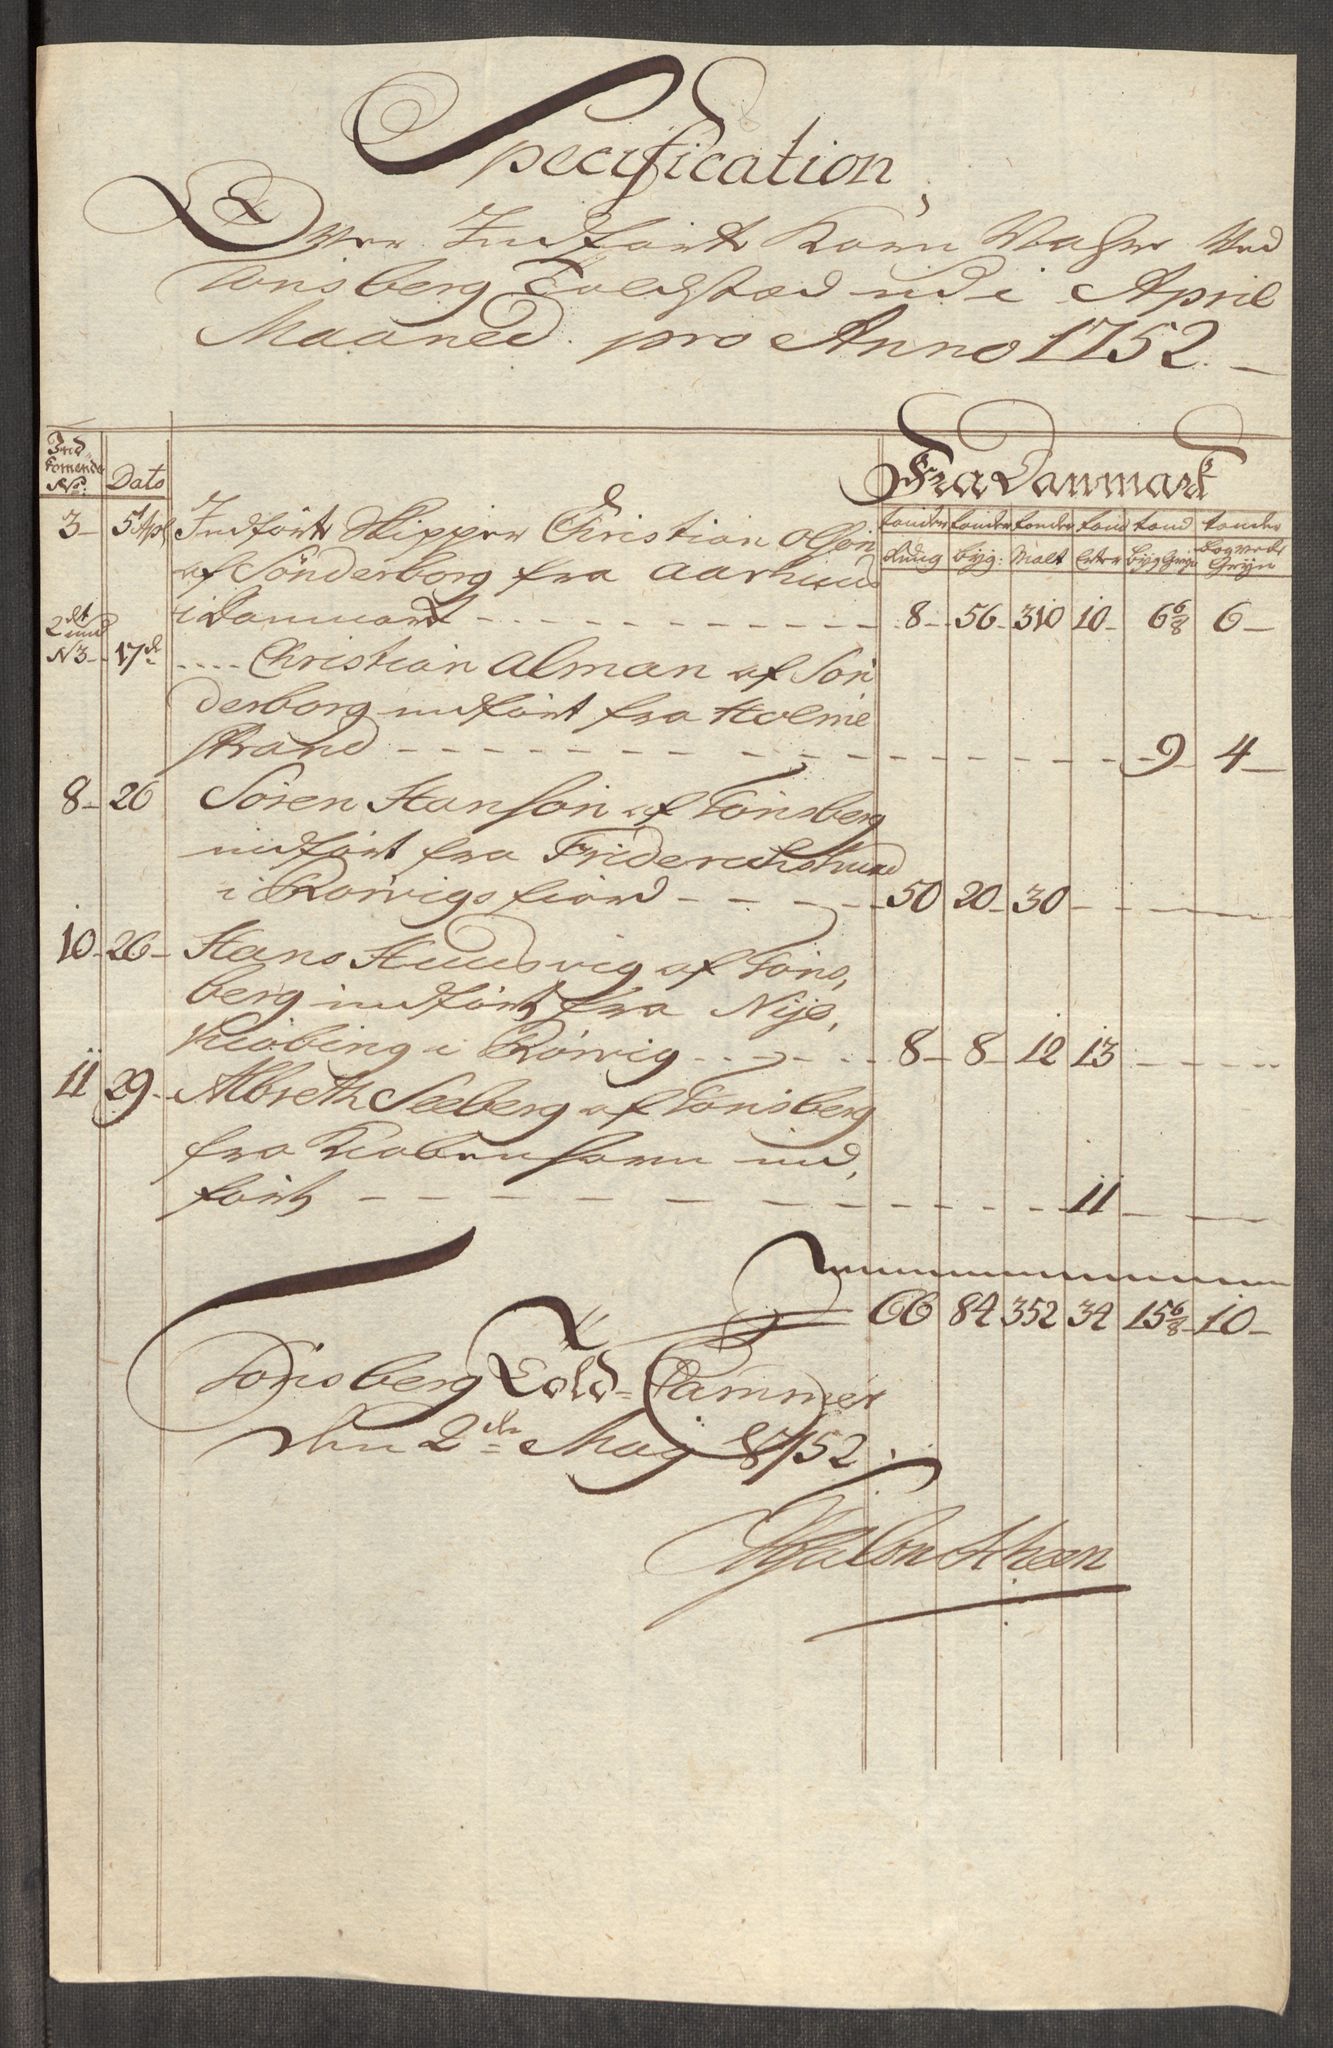 Specification
Over Indført Korn Vahre Ved
Tønsberg Toldsted udi April
Maaned pro Anno 1752
Fra Danmark
Ind
komende
No: Dato
tønder tønder tønder tønd tønd tønder
Rung byg: Malt Erter byg Gryn bogvede Gryn
3 5t Apl Indført Skipper Christian Olsøn
af Sønderborg fra Aarhuus
i Danmark 8 56 310 10 6 6/8 6
2det
N3 17de Christian Alman af Søn
derborg indført fra Holme
strand 9 4
8 26 Søren Hansøn af Tønsberg
indført fra Friderichsund
i Rørvigs fiord 50 20 30
10 26 Hans Huusvig af Tøns,
berg indført fra Nije,
kiøbing i Rørvig 8 8 12 13
11 29 Albreth Seeberg af Tønsberg
fra Kiøbenhavn ind,
ført 11
66 84 352 34 15 6/8 10
Tønsberg Told-Cammer
den 2de Maij 1752